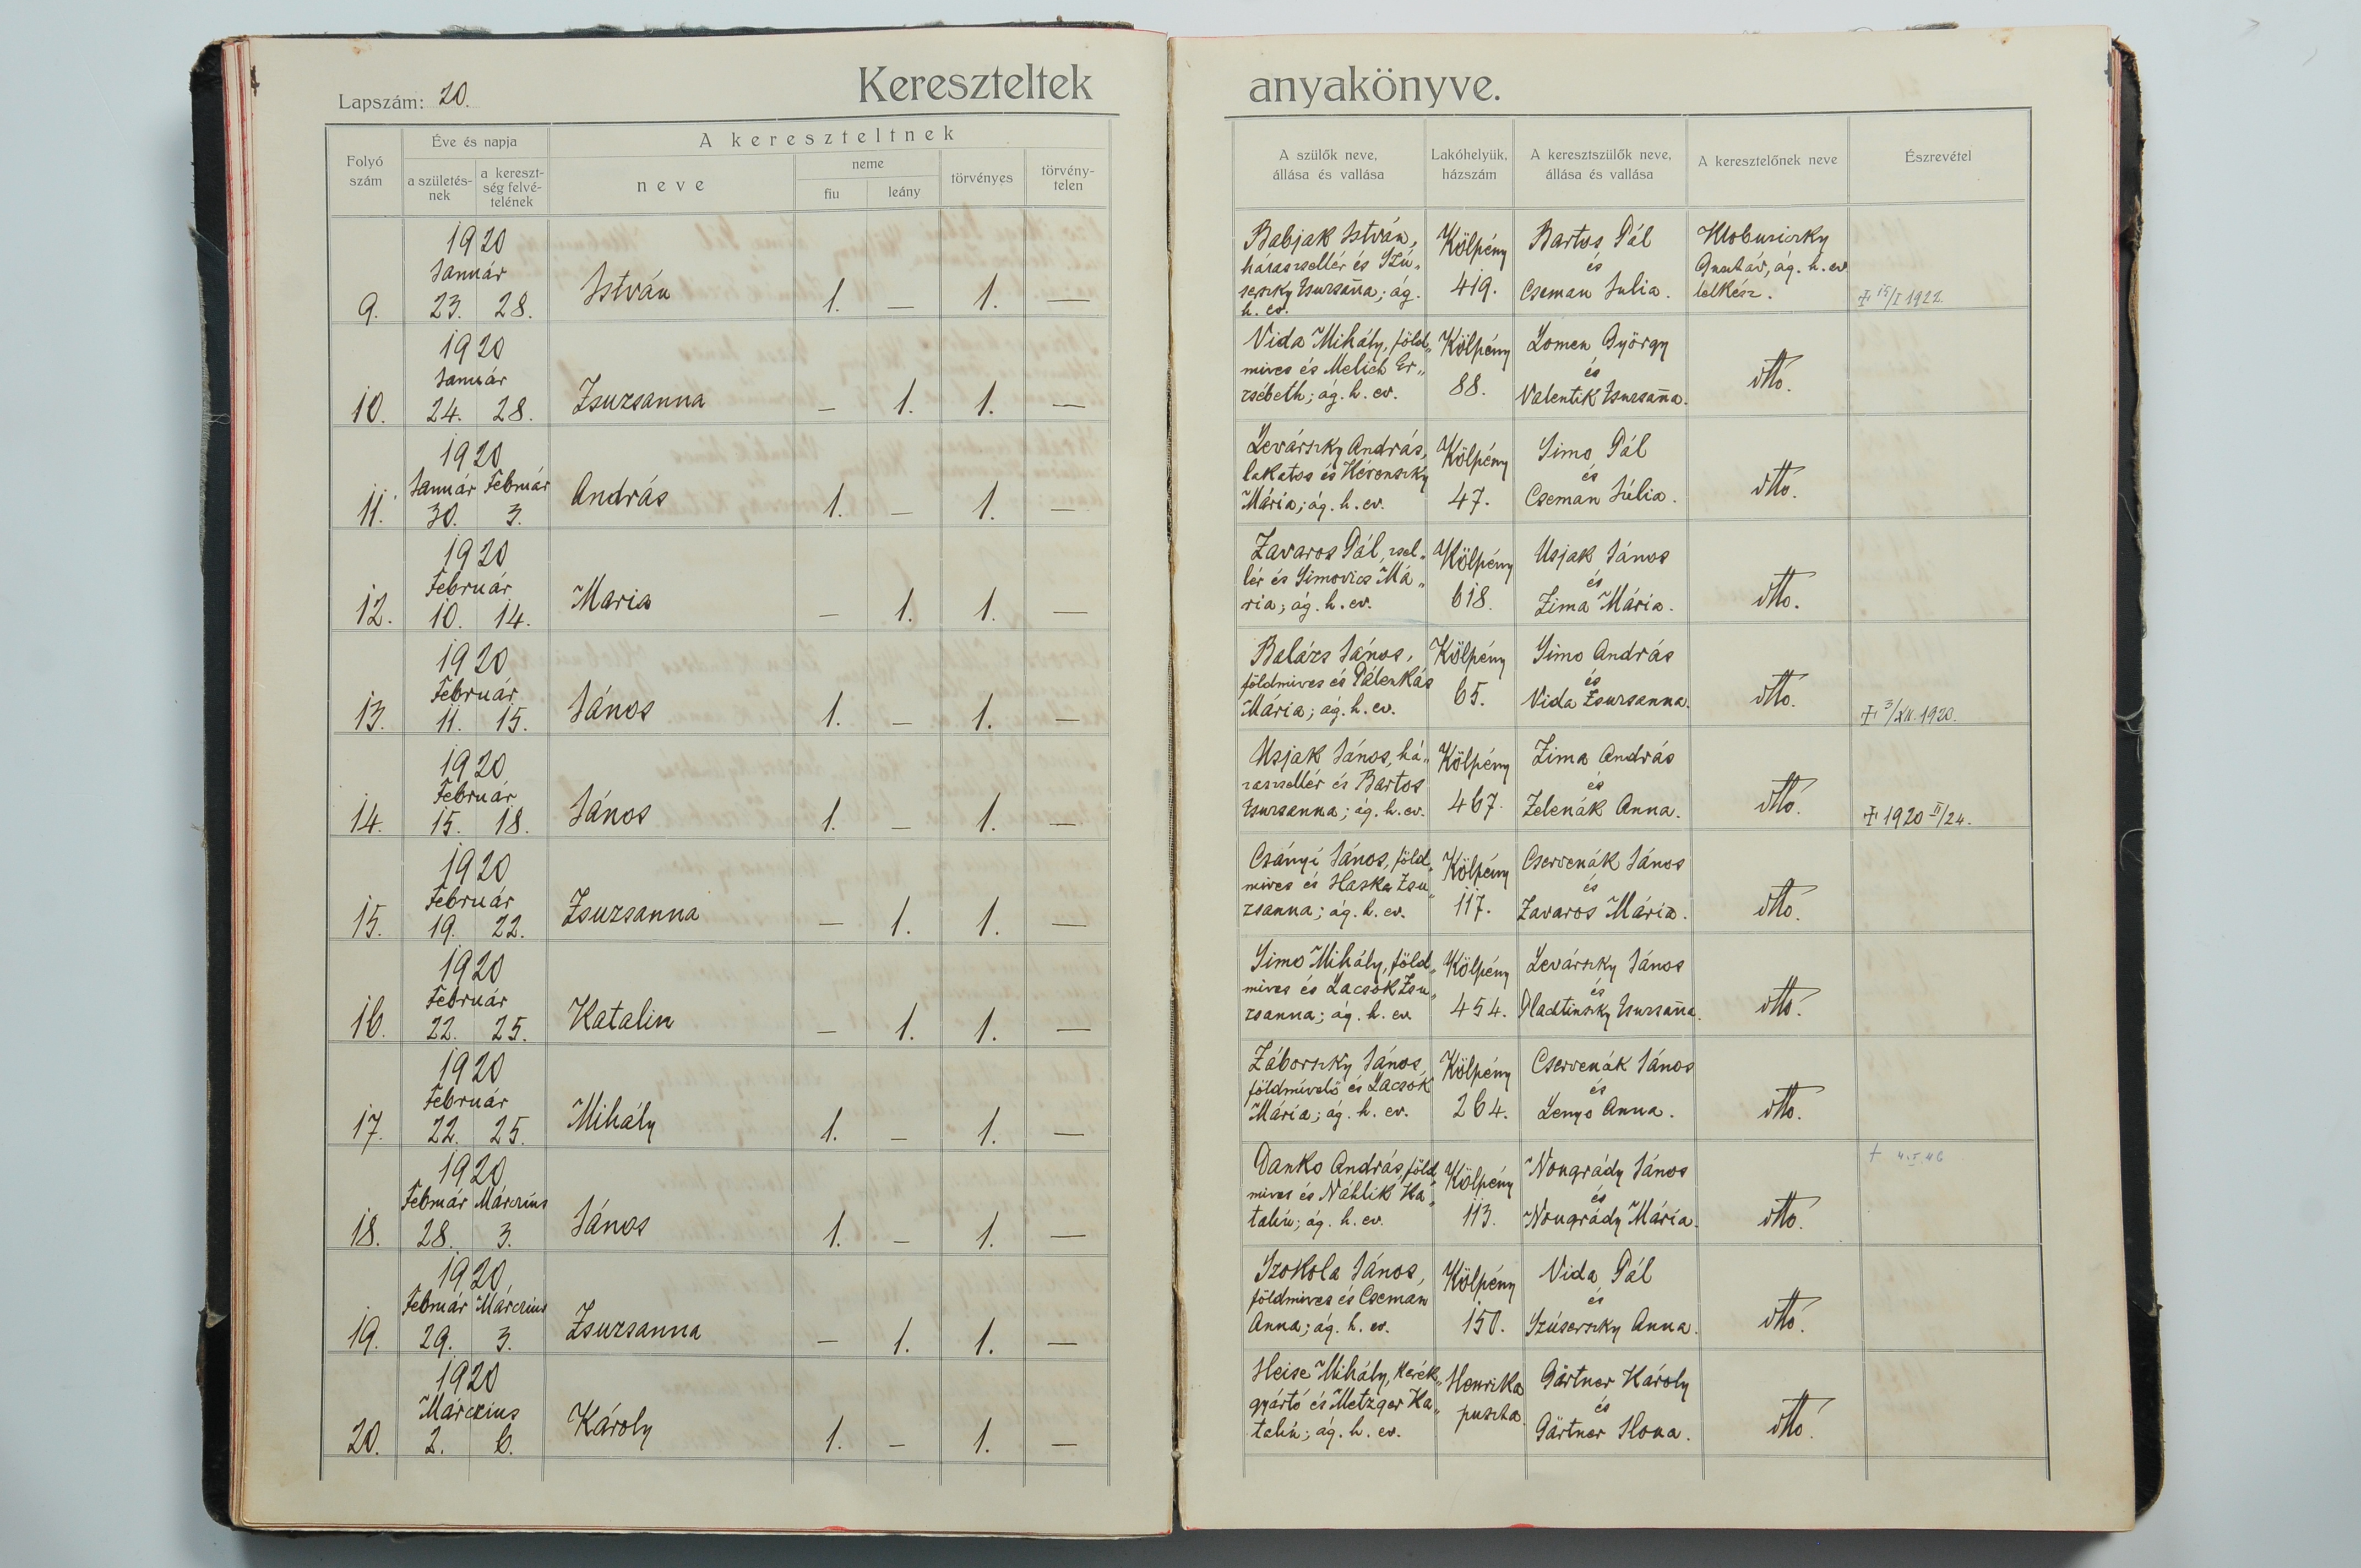 Lapszám: 20.
Kereszteltek anyakönyve.
Folyó szám
Éve és napja
a születés-nek
a kereszt-ség felvé-telének
A kereszteltnek
neve
neme
fiu
leány
törvényes
törvény-telen
A szülők neve, állása és vallása
Lakóhelyük, házszám
A keresztszülők neve, állása és vallása
A keresztelőnek neve
Észrevétel
1920
Január
9. 23. 28. István 1. — 1. —
Babjak István,
házaszsellér és Szú„
serszky Zsuzsan̄a; ág.
h. ev.
Kölpény
419.
Bartos Pál
és
Cseman Julia.
Klobusiczky
Gusztáv, ág. h. ev.
lelkész.
15/I 1922.
1920
Január
10. 24. 28. Zsuzsanna — 1. 1. —
Vida Mihály, föld„
mives és Melich Er„
zsébeth; ág. h. ev.
Kölpény
88.
Lomen György
és
Valentik Zsuzsan̄a.
dtto.
1920
Január Február
11. 30. 3. András 1. — 1. —
Levárszky András,
lakatos és
Mária; ág. h. ev.
Kölpény
47.
Simo Pál
és
Cseman Júlia.
dtto.
1920
Február
12. 10. 14. Maria — 1. 1. —
Zavaros Pál, zsel„
lér és Simovics Má„
ria; ág. h. ev.
Kölpény
618.
Usjak János
és
Zima Mária.
dtto.
1920
Február
13. 11. 15. János 1. — 1. —
Balázs János,
földmives és Pálenkás
Mária; ág. h. ev.
Kölpény
65.
Simo András
és
Vida Zsuzsanna.
dtto.
3/XII. 1920.
1920
Február
14. 15. 18. János 1. — 1. —
Usjak János, há„
zaszsellér és Bartos
Zsuzsanna; ág. h. ev.
Kölpény
467.
Zima András
és
Zelenák Anna.
dtto.
1920 II/24.
1920
Február
15. 19. 22. Zsuzsanna — 1. 1. —
Csányi János, föld„
mives és Haska Zsu„
zsanna; ág. h. ev.
Kölpény
117.
Cservenák János
és
Zavaros Mária.
dtto.
1920
Február
16. 22. 25. Katalin — 1. 1. —
Simo Mihály, föld„
mives és Lacsok Zsu„
zsanna; ág. h. ev.
Kölpény
454.
Levárszky János
és
Pladtinszky Zsuzsan̄a.
dtto.
1920
Február
17. 22. 25. Mihály 1. — 1. —
Záborszky János,
földmívelő és Lacsok
Mária; ág. h. ev.
Kölpény
264.
Cservenák János
és
Lenyo Anna.
dtto.
1920
Február Márczius
18. 28. 3. János 1. — 1. —
Danko András, föld„
mives és Náhlik Ka„
talin; ág. h. ev.
Kölpény
113.
Nougrády János
és
Nougrády Mária.
dtto.
1920
Február Márczius
19. 29. 3. Zsuzsanna — 1. 1. —
Szokola János,
földmives és Cseman
Anna; ág. h. ev.
Kölpény
150.
Vida Pál
és
Szúserszky Anna.
dtto.
1920
Márczius
20. 2. 6. Károly 1. — 1. —
Heise Mihály, kerék„
gyártó és Metzger Ka„
talin; ág. h. ev.
Henrika
puszta.
Gärtner Károly
és
Gärtner Ilona.
dtto.